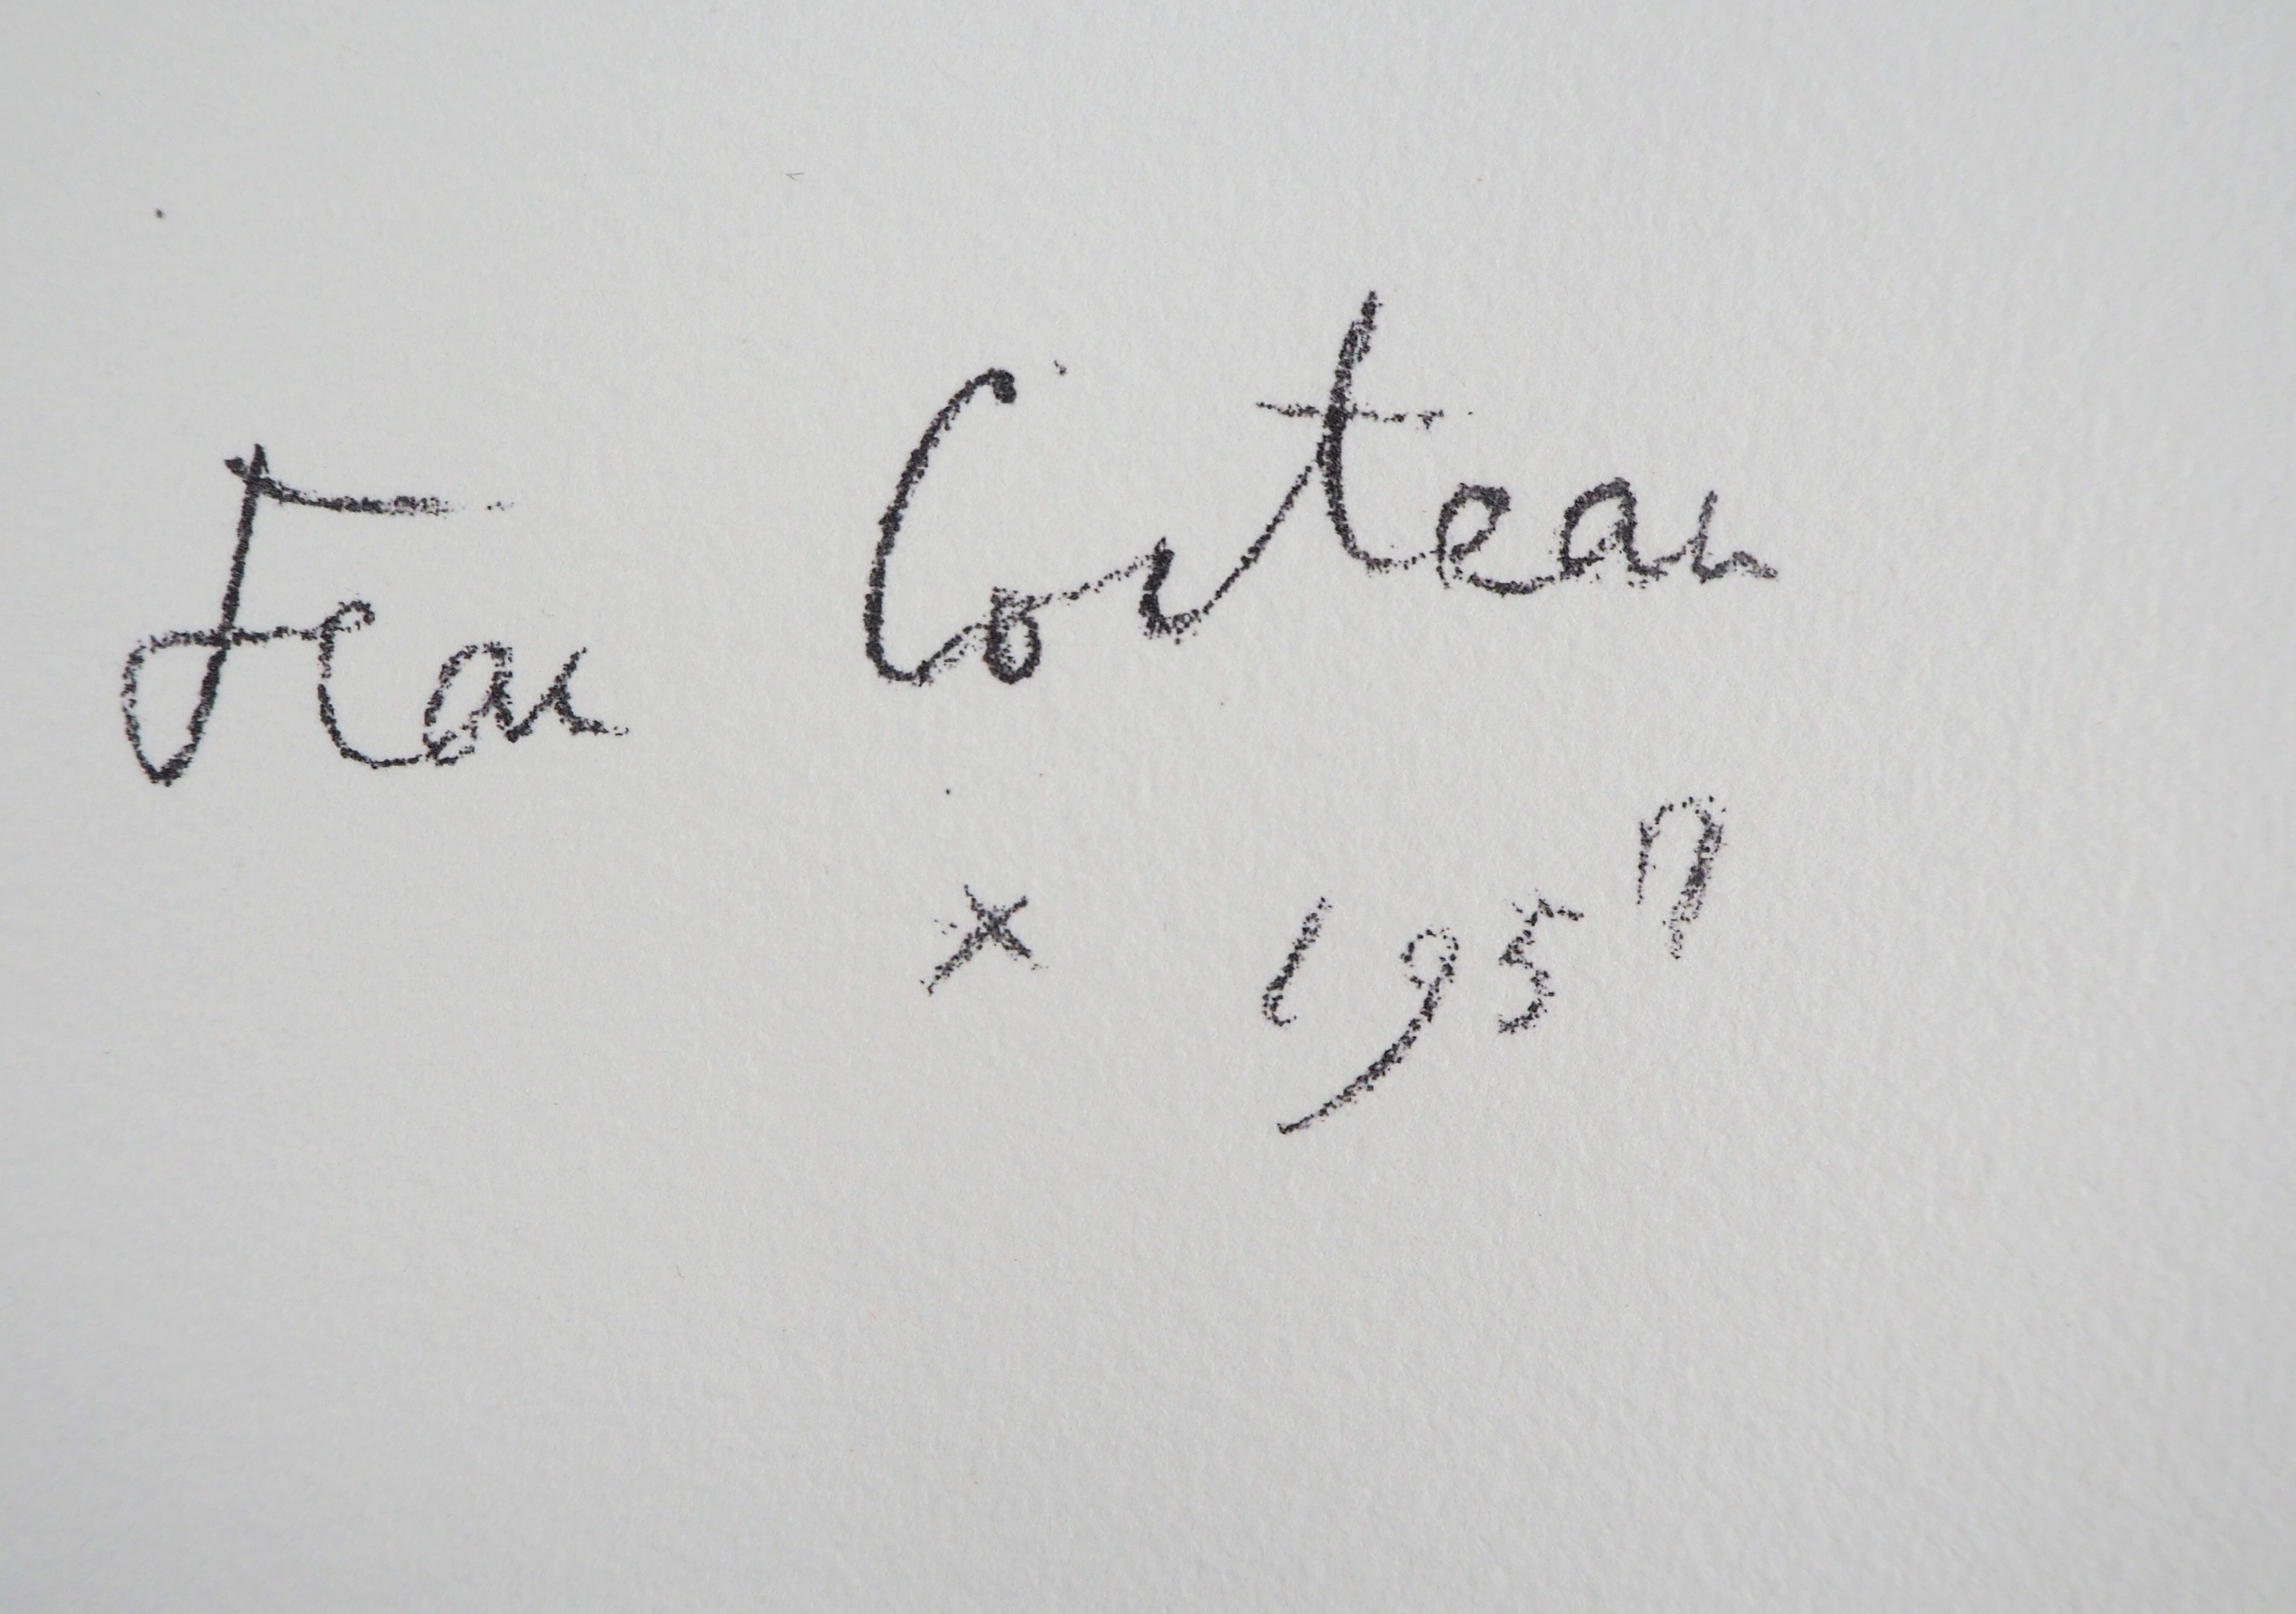 Jean Cocteau
× 1957